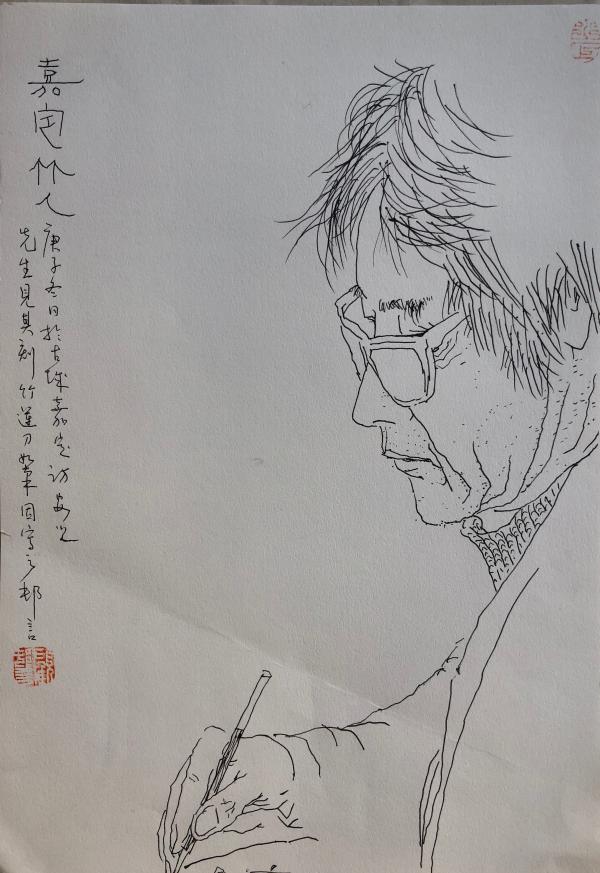 嘉定竹人
庚子冬日於古城嘉定訪安之
先生見其刻竹運刀如筆因寫之邨言